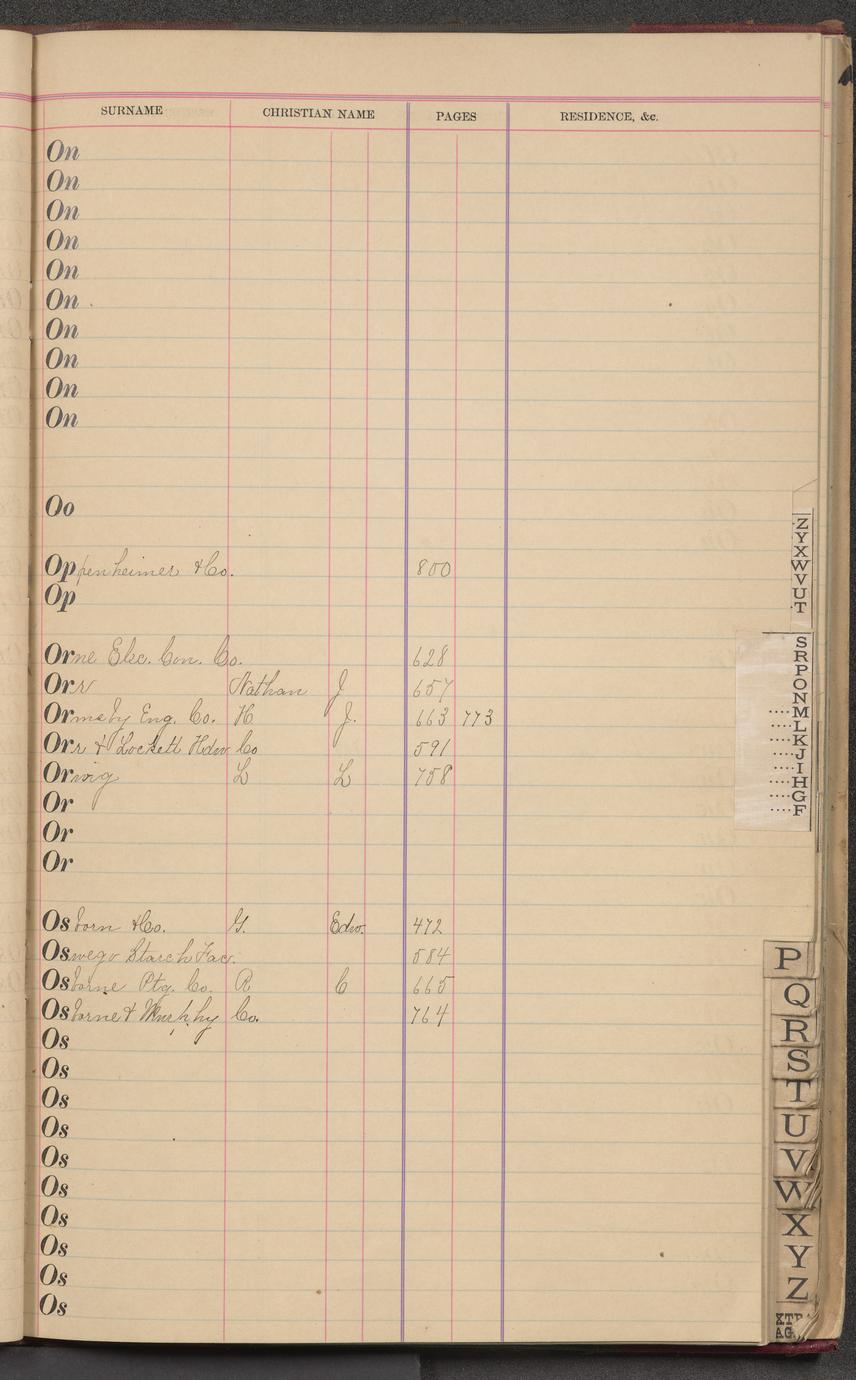 SURNAME CHRISTIAN NAME PAGES RESIDENCE, &c.
On
On
On
On
On
On
On
On
On
On
Oo
Oppenheimer & Co. 800
Op
Orne Elec. Con. Co. 628
Orr Nathan J 657
Ormsby Eng. Co. H J. 663 773
Orr & Lockett Hdw Co 591
Orwig L L 758
Or
Or
Or
Osborn & Co. G. Edw. 472
Oswego Starch Fac. 584
Osborne Ptg. Co. R C 665
Osborne & Murphy Co. 764
Os
Os
Os
Os
Os
Os
Os
Os
Os
Os
Z
Y
X
W
V
U
T
S
R
P
O
N
M
L
K
J
I
H
G
F
P
Q
R
S
T
U
V
W
X
Y
Z